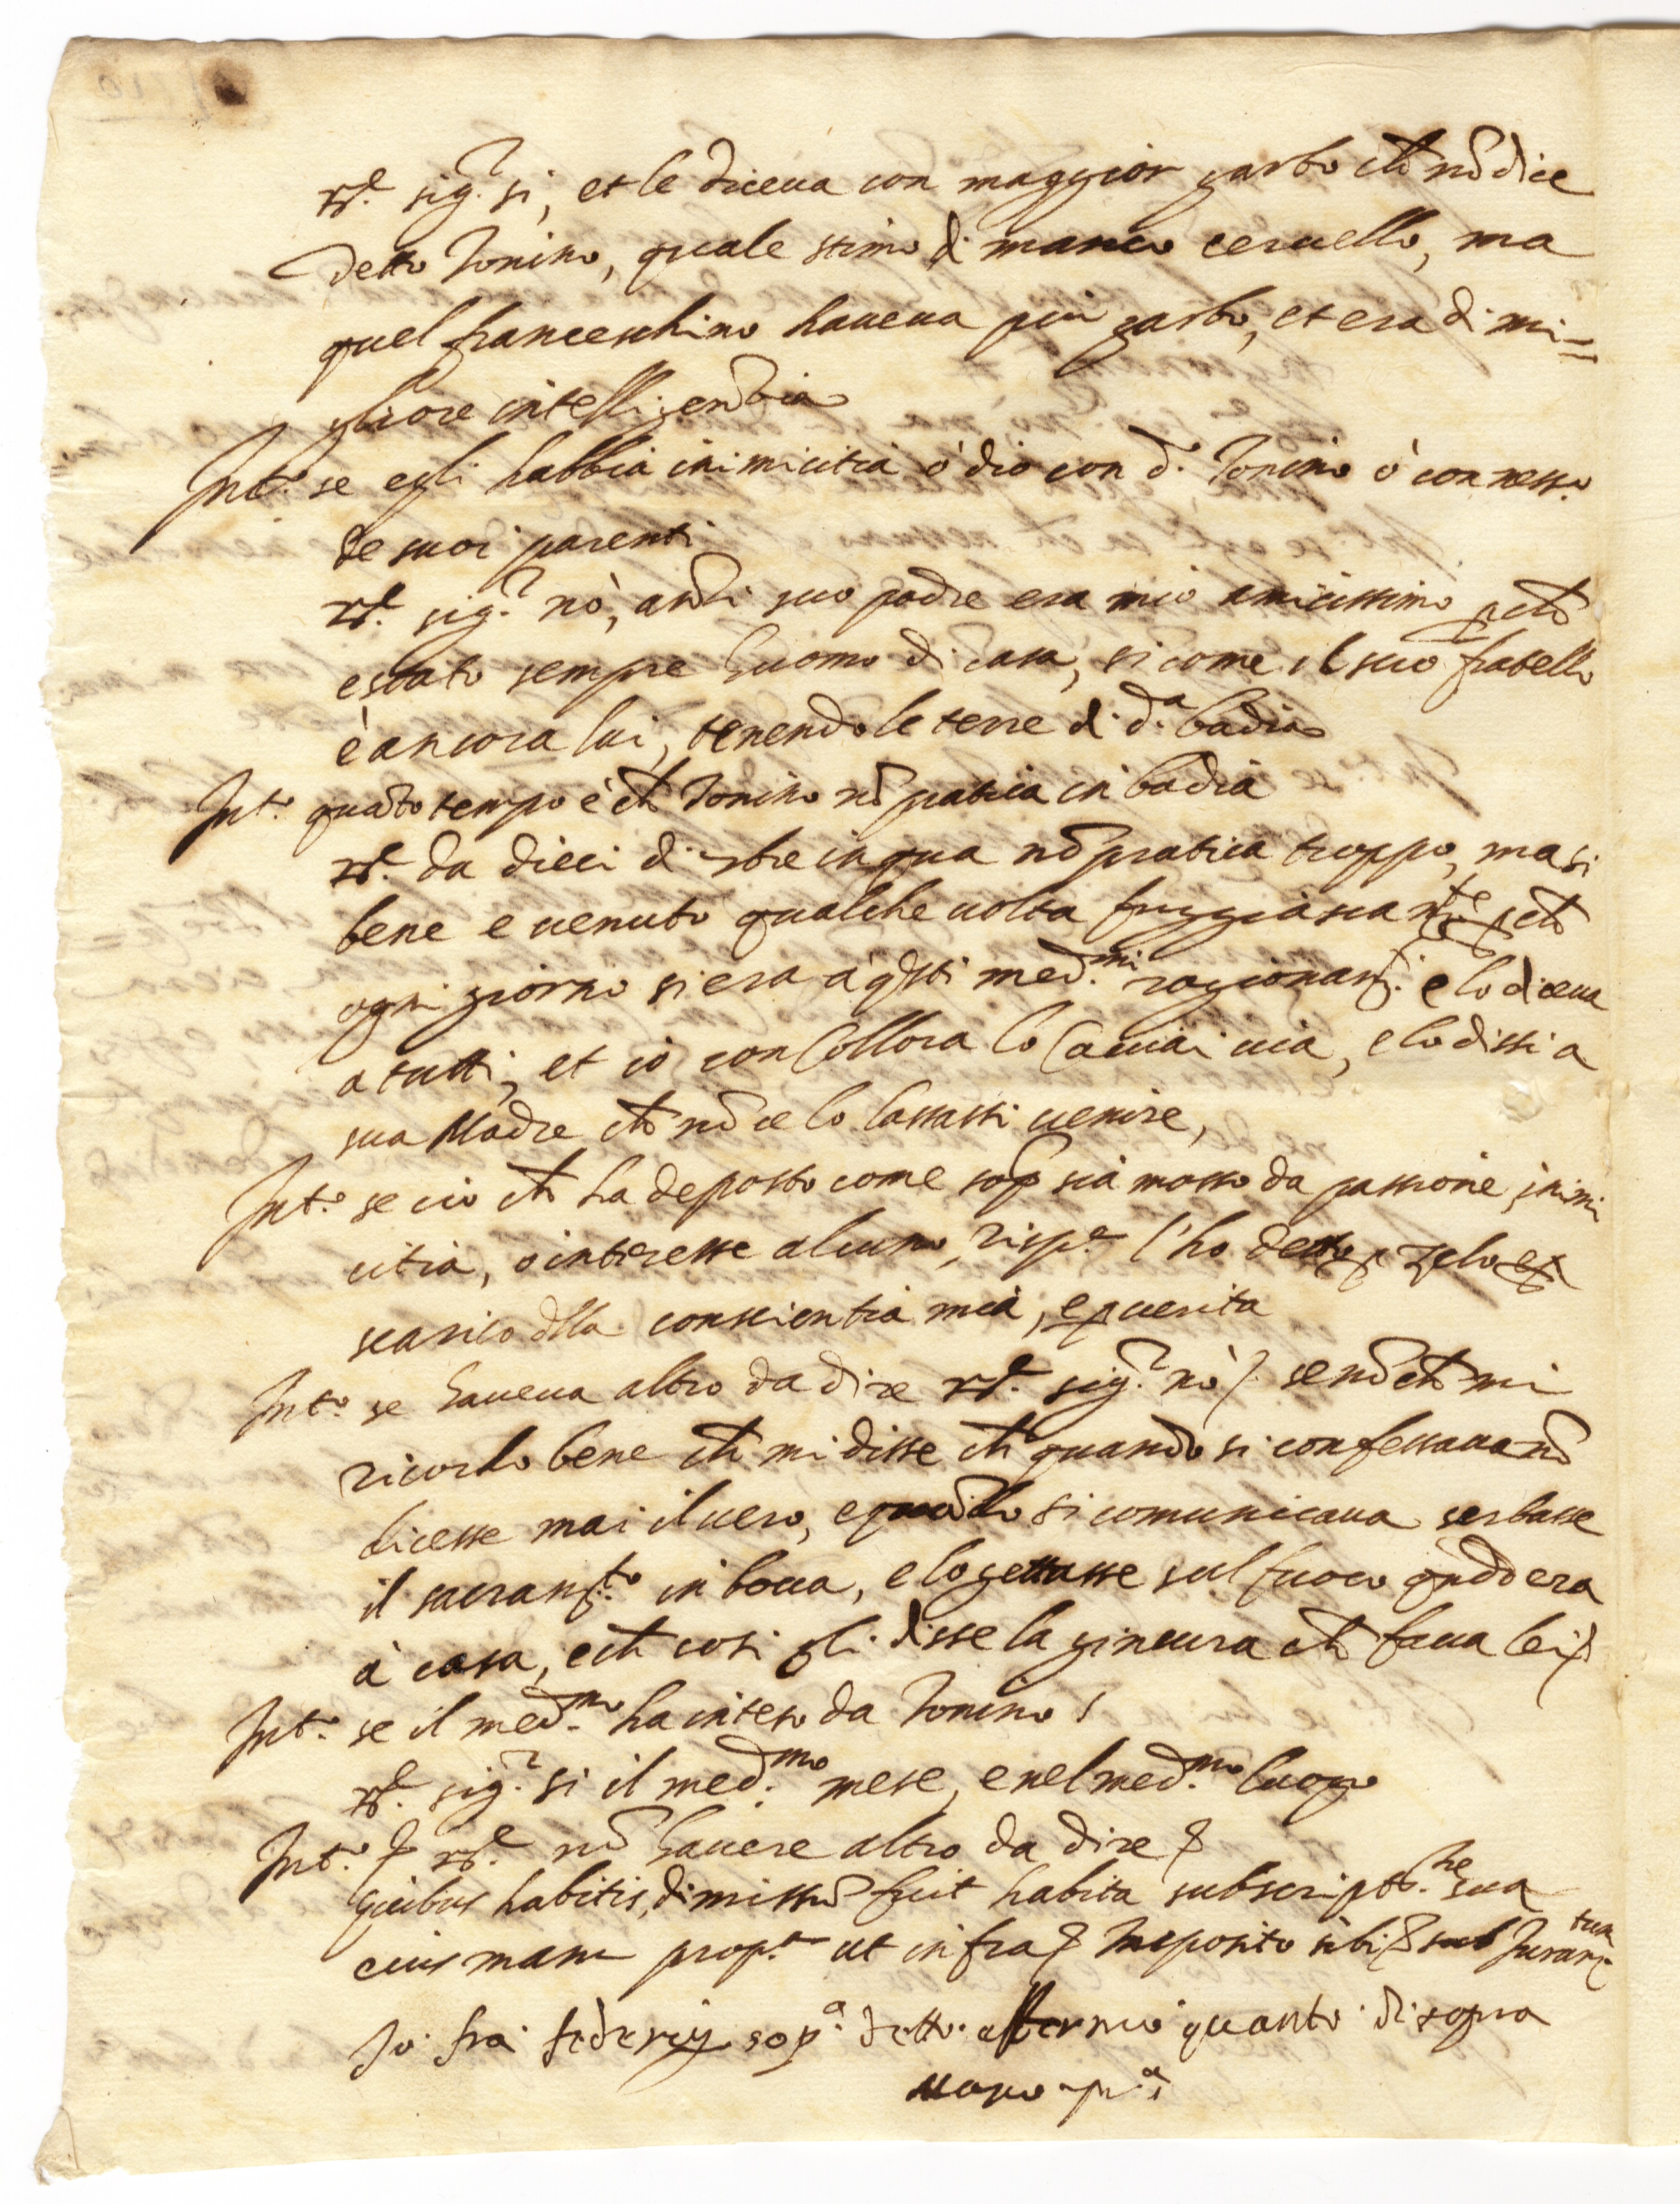 rs.e sig.r si, et le diceua con maggior garbo ch̃ nõ dice
detto Tonino, quale stimo di manco ceruello, ma
quel franceschino haueua piu garbo, et era di mi=
gliore intelligenẽtia
Int.o se egli habbia inimicitia ó dio con d.o Tonino ó con ness.o
de suoi parenti
rs.e sig.r nò, anzi suo padre era mio amicissimo p ch̃
e stato sempre huomo di casa, si come il suo fratello
è ancora lui, tenendo le terre di d.a badia
Int.o quãto tempo è ch̃ Tonino nõ pratica in badia
rs.e da dieci di 7bre in qua nõ pratica troppo, ma si
bene e uenuto qualche uolta fuggiascam.te p ch̃
ogni giorno si era a q̃sti med.mi ragionam.ti e lo diceua
a tutti, et io con Collora lo Cacciai uia, e lo dissi a
sua Madre ch̃ nõ ce lo lassassi uenire,
Int.o se cio ch̃ ha deposto come sop sia mosso da passione, inimi
citia, o interesse alcuno, risp.e l'ho detto p zelo et p
scarico dlla conscientia mia, e p uerita
Int.o se haueua altro da dire rs.e sig.r nò se nõ ch̃ mi
ricordo bene ch̃ mi disse ch̃ quando si confessaua nõ
dicesse mai il uero, e quãdo si comunicaua serbasse
il sacram.to in bocca, e lo gettasse sul fuoco quãdo era
à casa, e ch̃ cosi gli disse la gineura ch̃ faceua lei
Int.o se il med.mo ha inteso da Tonino
rs.e sig.r si il med.mo mese, e nel med.mo luogo
Int.o rs.e nõ hauere altro da dire
quibus habitis, dimissũ fuit habita subscript.ne sua
eius manu prop.a ut infra Imposito sibi sub Juram.tum
Io fra federigo sop.a detto affermo quanto di sopra
mano pp.a